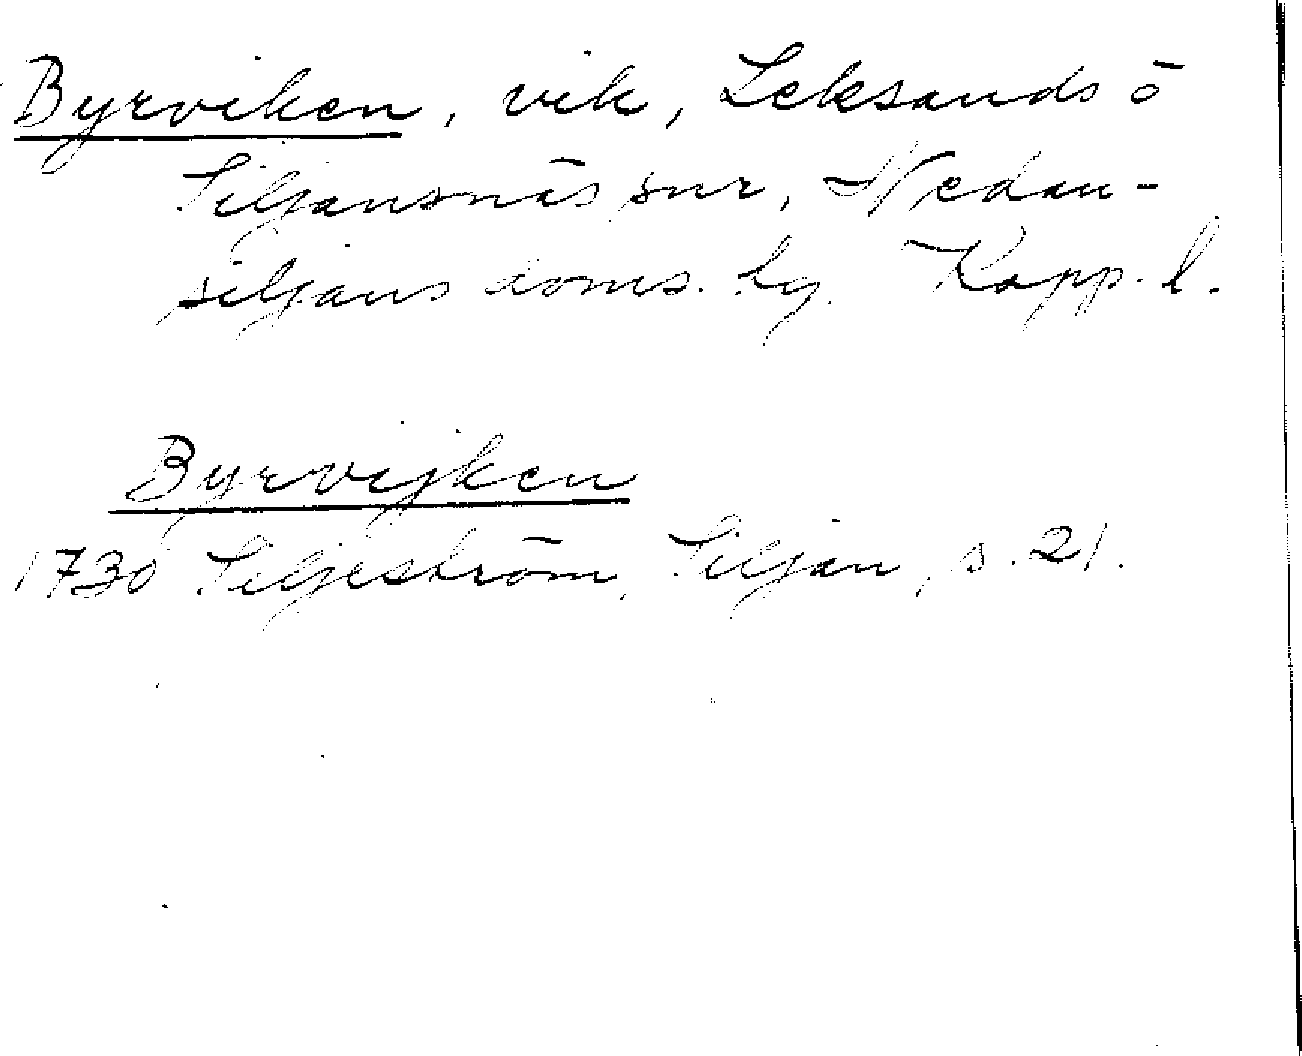 Byrviken, vik, Leksands o
Siljansnäs snr, Nedan-
siljans doms. hg. Kopp. l.
Byrvijken
1730 Siljeström, Siljan, s. 21.